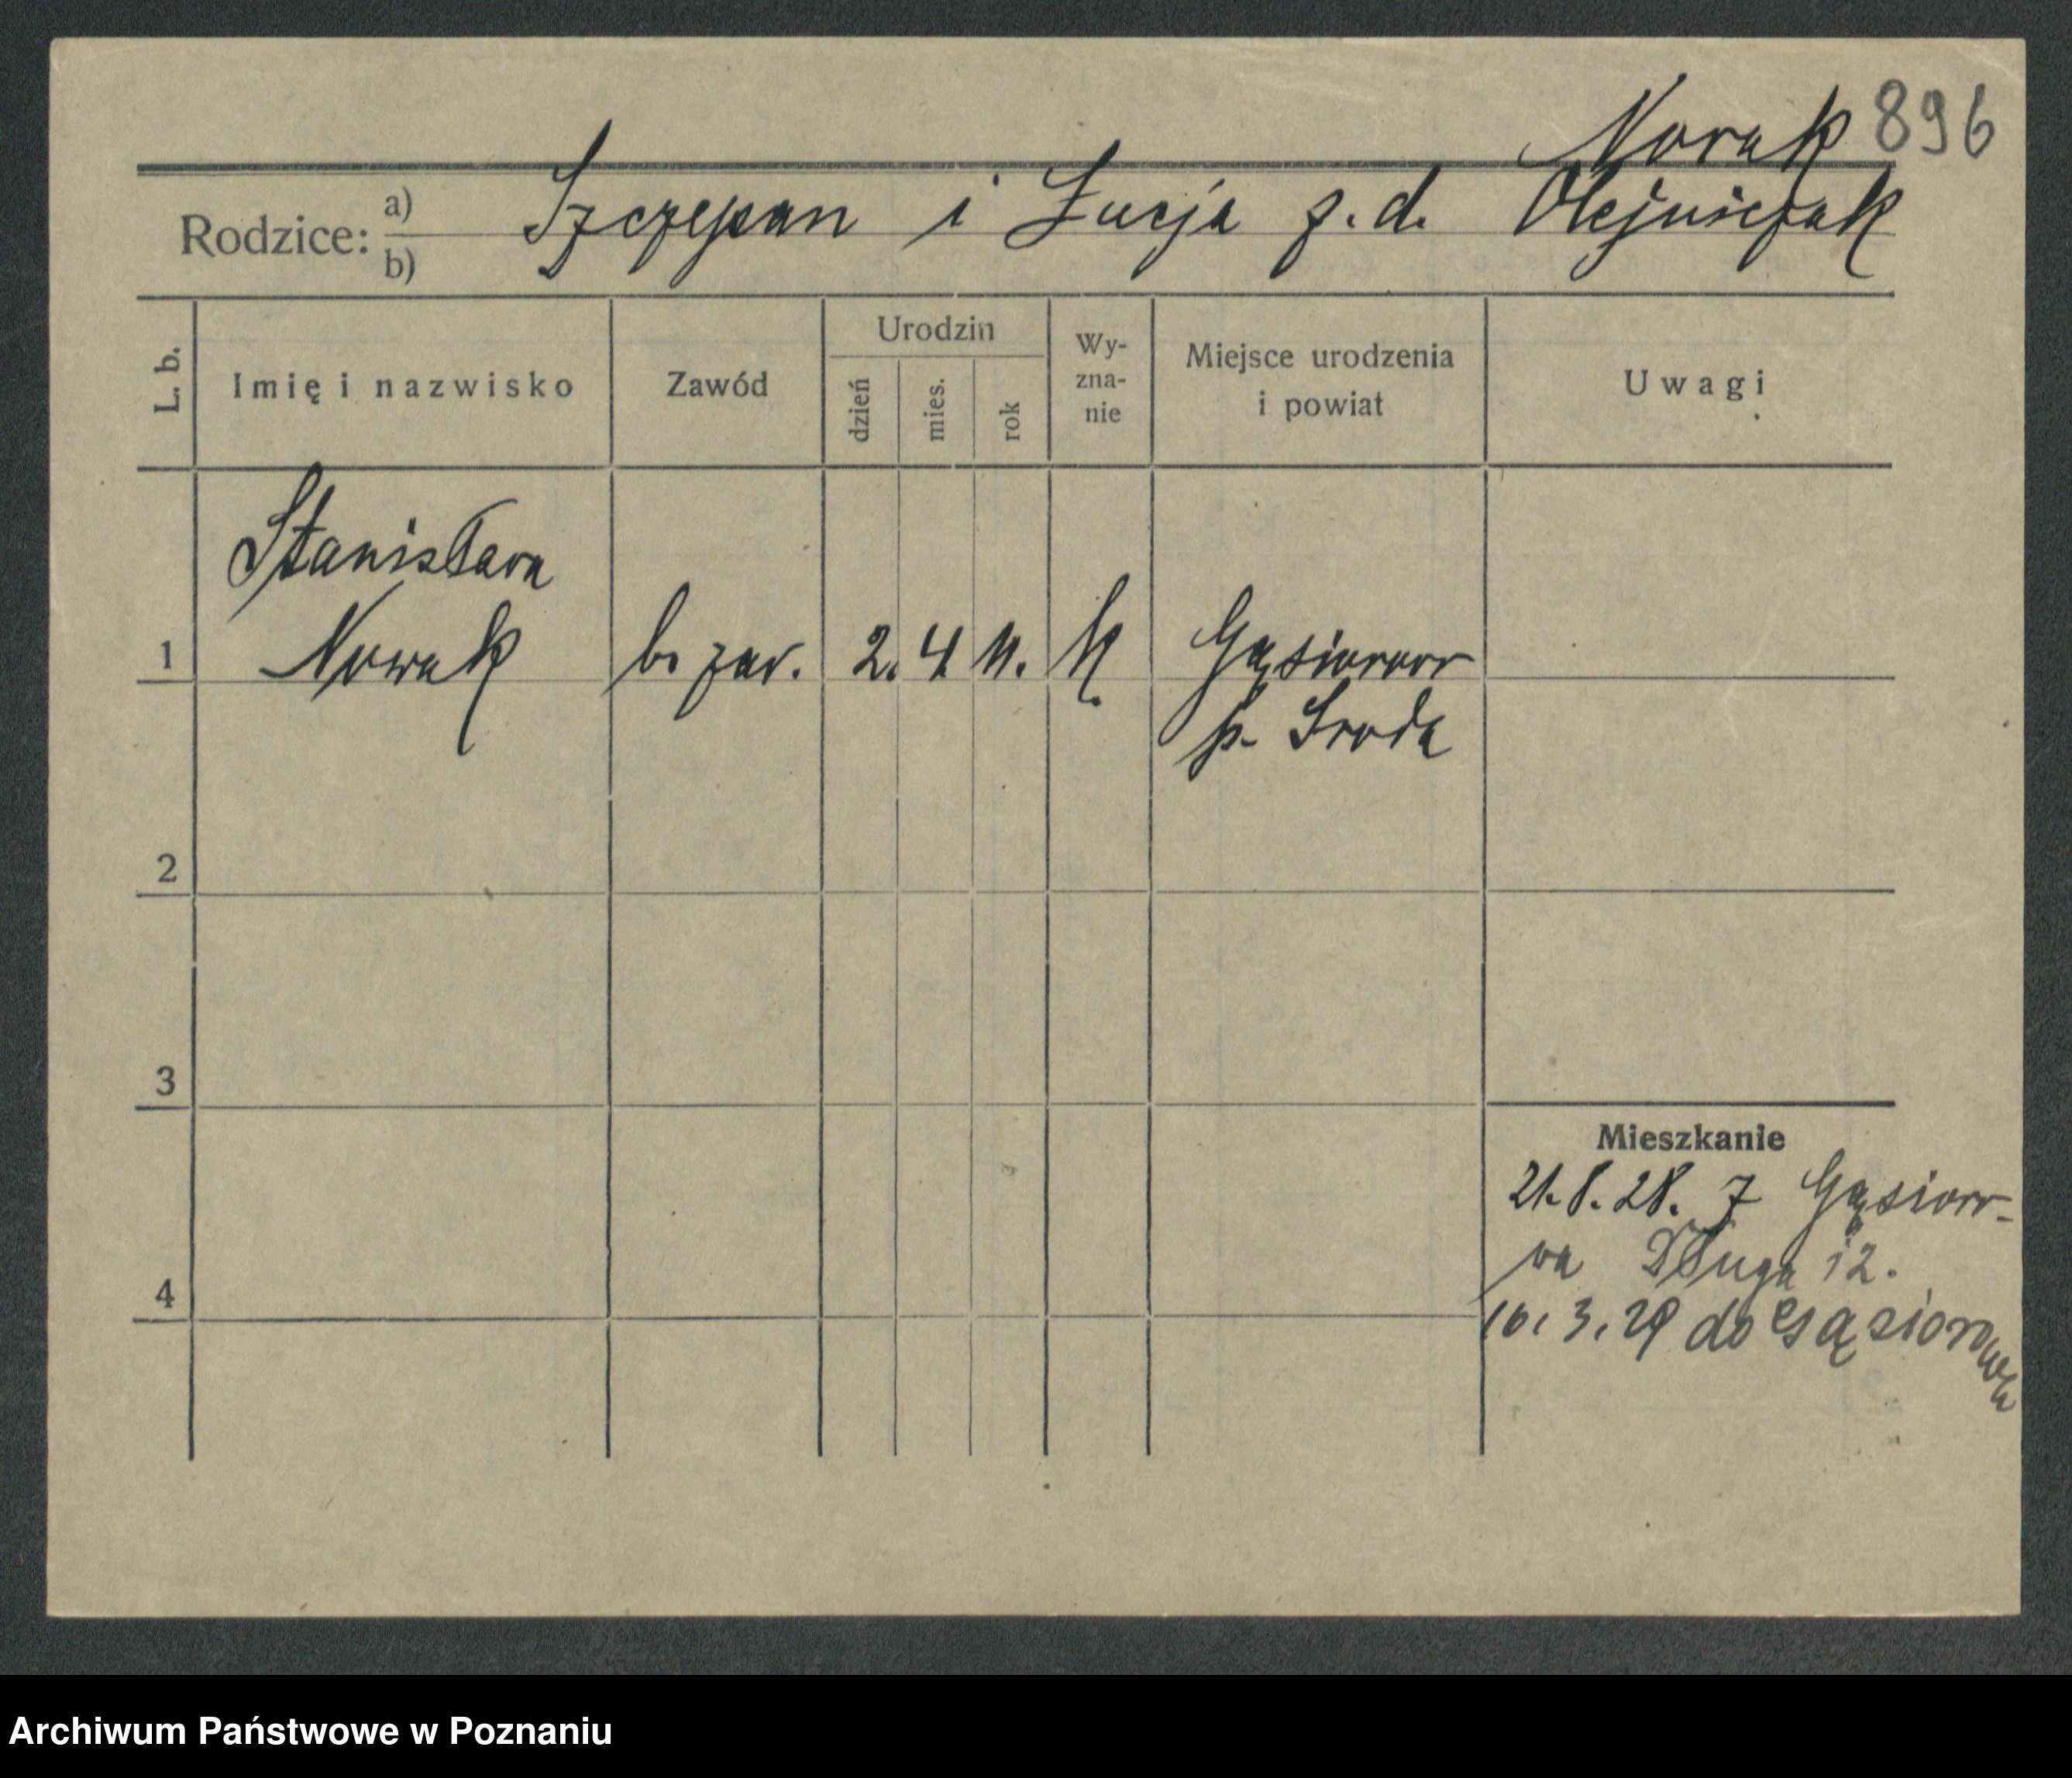 Nowak 896
Rodzice: a) b) Szczepan i Łucja z.d. Olejniczak
L. b.
Imię i nazwisko
Zawód
Urodzin
dzień
mies.
rok
Wy-
zna-
nie
Miejsce urodzenia
i powiat
Uwagi
Stanisława
1 Nowak b. zaw. 2. 4 11. K. Gąsiorow
p. Sroda
2
3
Mieszkanie
21.8.28. z Gąsioro-
wa Długa 12.
4
16.3.29 do Gąsiorowa
Archiwum Państwowe w Poznaniu